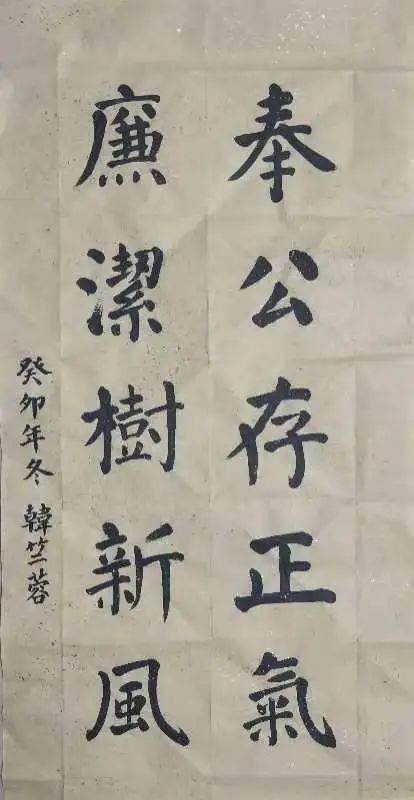 奉公存正氣
廉潔樹新風
癸卯年冬 韓竺蓉